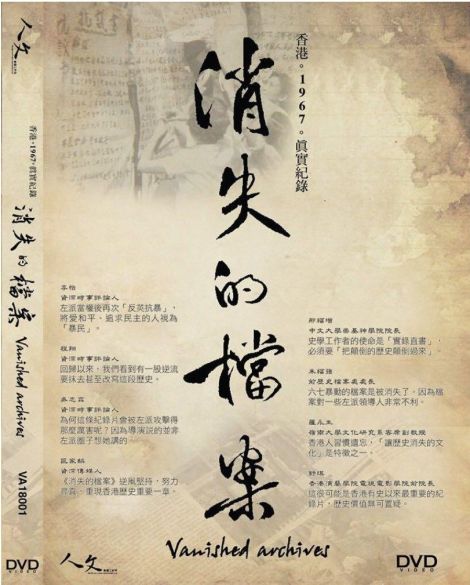 人文
香港。1967。真實紀錄
消失的檔案
Vanished archives
VA18001
DVD
VIDEO
香港。1967。真實紀錄
消失的檔案
李怡
資深時事評論人
左派當權後再次「反英抗暴」，
將愛和平、追求民主的人視為
「暴民」。
程翔
資深時事評論人
回歸以來，我們看到有一股逆流
要抹去甚至改寫這段歷史。
吳志森
資深時事評論人
為何這條紀錄片會被左派攻擊得
那麼厲害呢？因為導演說的並非
左派圈子想她講的
區家麟
資深傳媒人
《消失的檔案》逆風堅持，努力
尋真，重現香港歷史重要一章。
邢福增
中文大學崇基神學院院長
史學工作者的使命是「實錄直書」，
必須要「把顛倒的歷史顛倒過來」
朱福強
前歷史檔案處處長
六七暴動的檔案是被消失了，因為檔
案對一些左派領導人非常不利。
羅永生
嶺南大學文化研究系客席副教授
香港人習慣遺忘，「讓歷史消失的文
化」是特徵之一。
舒琪
香港演藝學院電視電影學院前院長
這很可能是香港有史以來最重要的紀
錄片，歷史價值無可置疑。
人文
Vanished archives
DVD
VIDEO